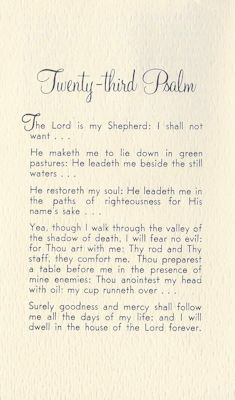 Twenty-third Psalm
The Lord is my Shepherd: I shall not
want . . .
He maketh me to lie down in green
pastures: He leadeth me beside the still
waters . . .
He restoreth my soul: He leadeth me in
the paths of righteousness for His
name's sake . . .
Yea, though I walk through the valley of
the shadow of death, I will fear no evil;
for Thou art with me: Thy rod and Thy
staff, they comfort me. Thou preparest
a table before me in the presence of
mine enemies: Thou anointest my head
with oil: my cup runneth over . . .
Surely goodness and mercy shall follow
me all the days of my life: and I will
dwell in the house of the Lord forever.